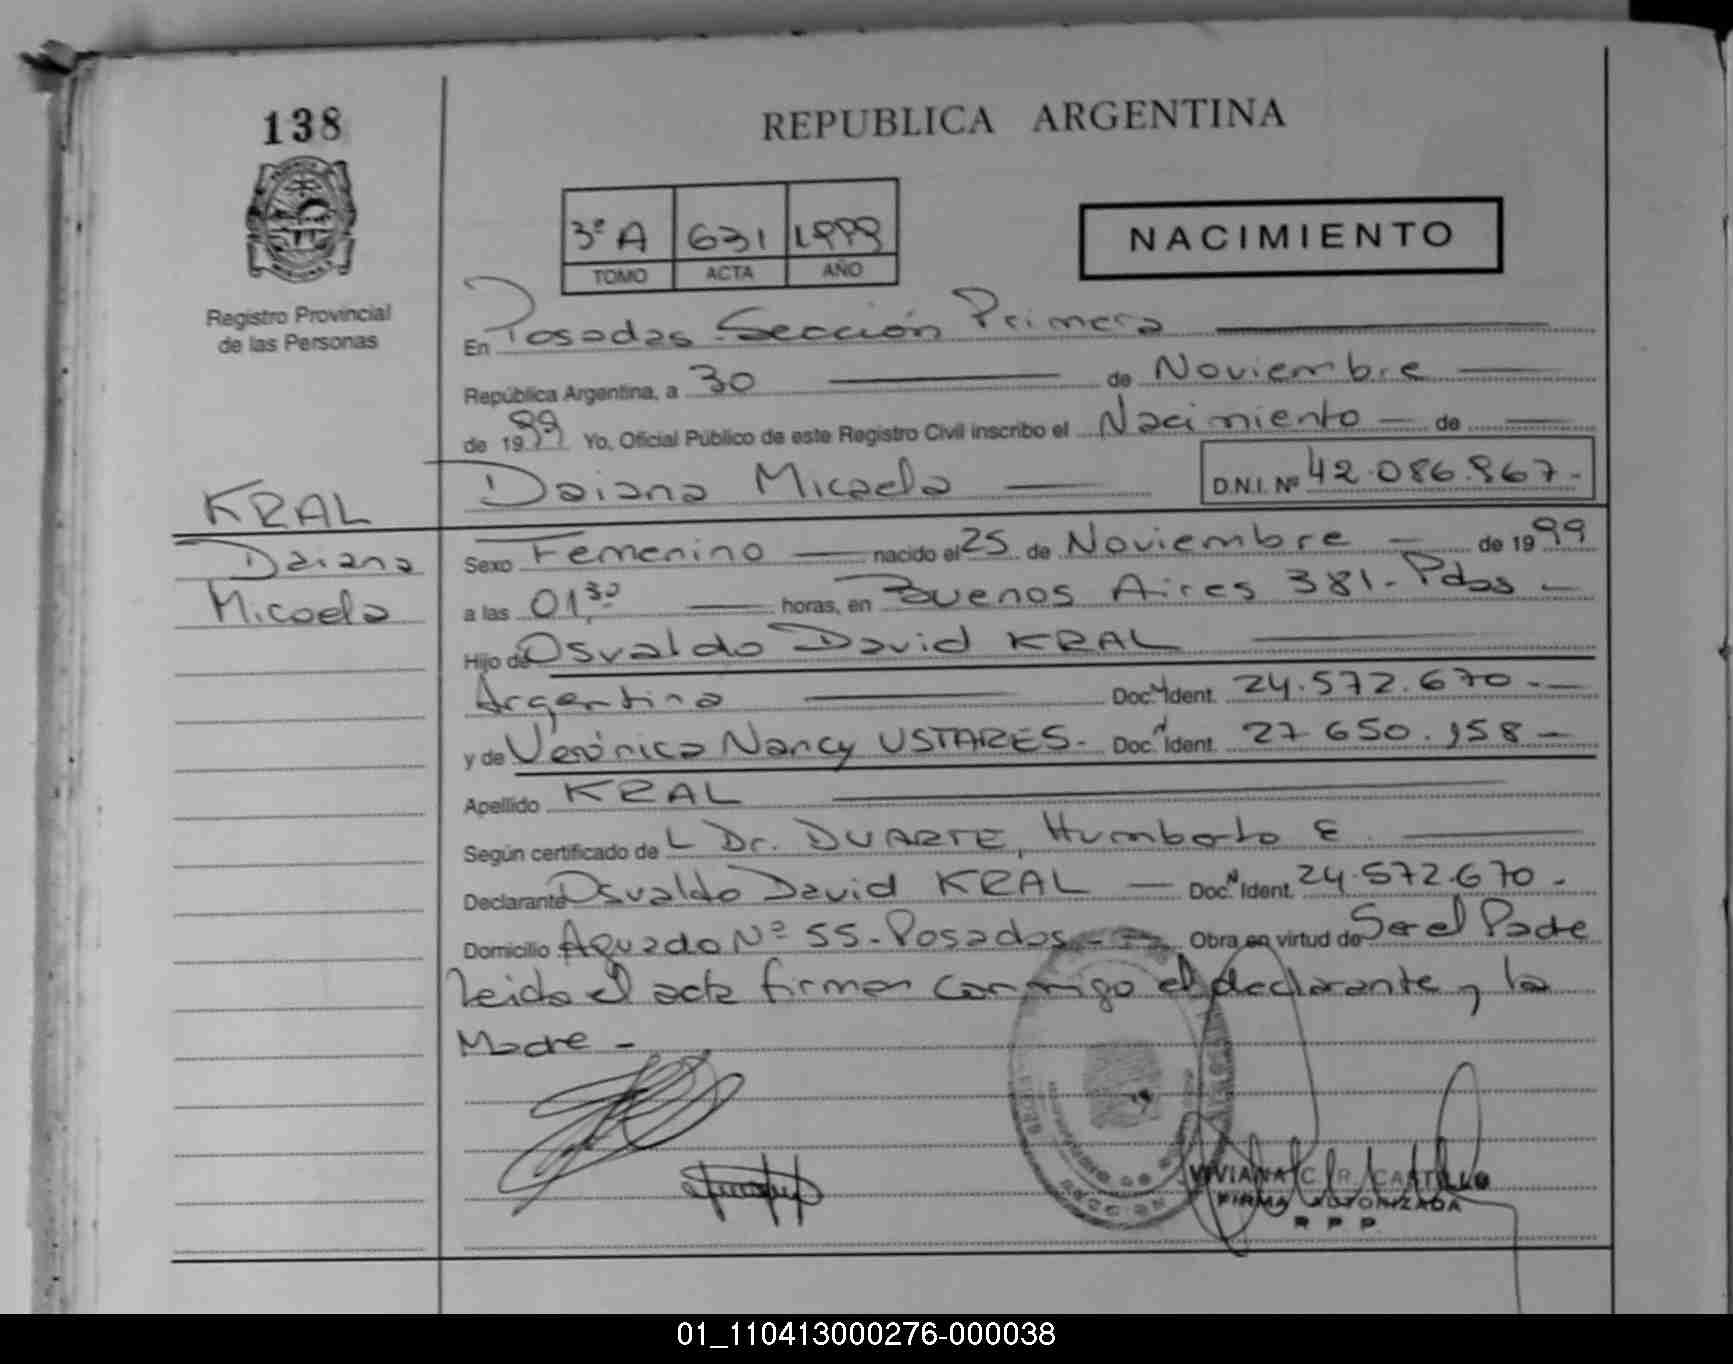 138
REPUBLICA ARGENTINA
3º A 631 1999
TOMO ACTA AÑO
NACIMIENTO
Registro Provincial
de las Personas
En Posadas Sección Primera
República Argentina, a 30 de Noviembre
de 1999 Yo, Oficial Público de este Registro Civil inscribo el Nacimiento de
Daiana Micaela D.N.I. Nº 42.086.867.-
KRAL
Daiana
Micaela
Sexo Femenino nacido el 25 de Noviembre de 1999
a las 01,30 horas, en Buenos Aires 381.- Pdas
Hijo de Osvaldo David KRAL
Argentina Doc. Ident. 24.572.670.-
y de Verónica Nancy USTARES.- Doc. Ident. 27 650.158
Apellido KRAL
Según certificado de L Dr. DUARTE, Humberto E
Declarante Osvaldo David KRAL Doc. Ident. 24.572.670.
Domicilio Aguado Nº 55.- Posadas.- Obra en virtud de Ser el Padre
Leida el acta firman conmigo el declarante y la
Madre.-
VIVIANA C. R. CASTILLO
FIRMA AUTORIZADA
R P P
01_110413000276-000038